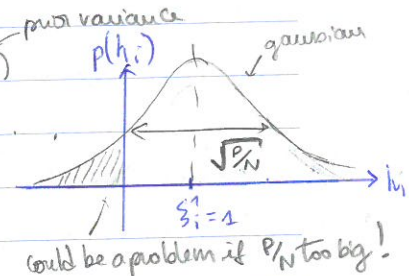 prior variance
)
p(hᵢ)
gaussian
√P/N
hᵢ
ξᵢ¹ = 1
could be a problem if P/N too big!